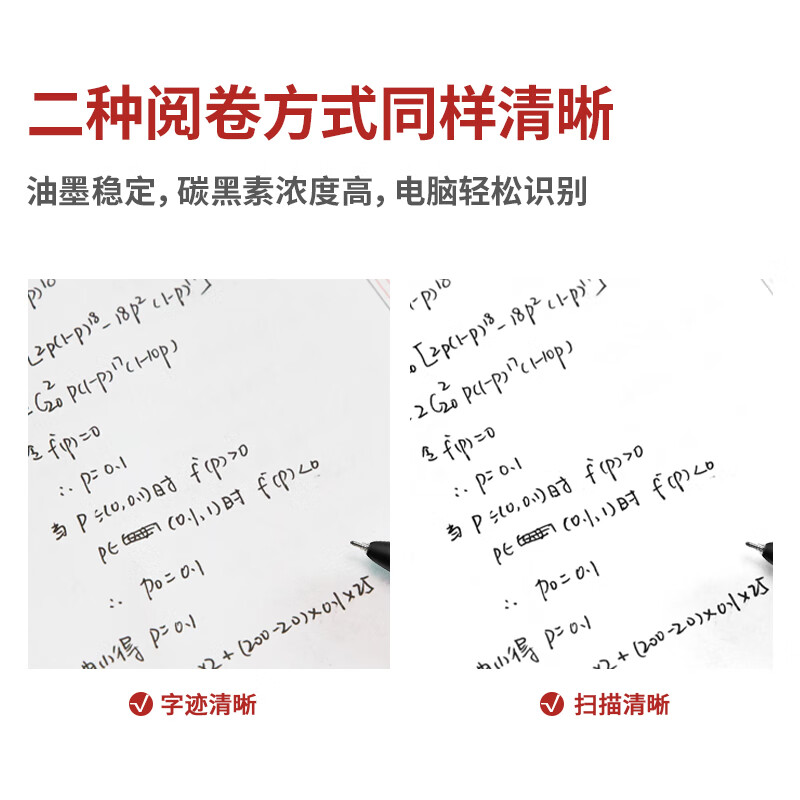 二种阅卷方式同样清晰
油墨稳定，碳黑素浓度高，电脑轻松识别
[2p(1-p)¹⁸-18p²(1-p)¹⁷]
C²₂₀ p(1-p)¹⁷(1-10p)
令f'(p)=0
∴ p=0.1
当 p=(0,0.1)时 f'(p)>0
p∈ (0.1,1)时 f'(p)<0
∴ p₀=0.1
得 p=0.1
×2+(200-20)×0.1×25
[2p(1-p)¹⁸-18p²(1-p)¹⁷]
2C²₂₀ p(1-p)¹⁷(1-10p)
令f'(p)=0
∴ p=0.1
当 p=(0,0.1)时 f'(p)>0
p∈ (0.1,1)时 f'(p)<0
∴ p₀=0.1
得 p=0.1
×2+(200-20)×0.1×25
字迹清晰
扫描清晰